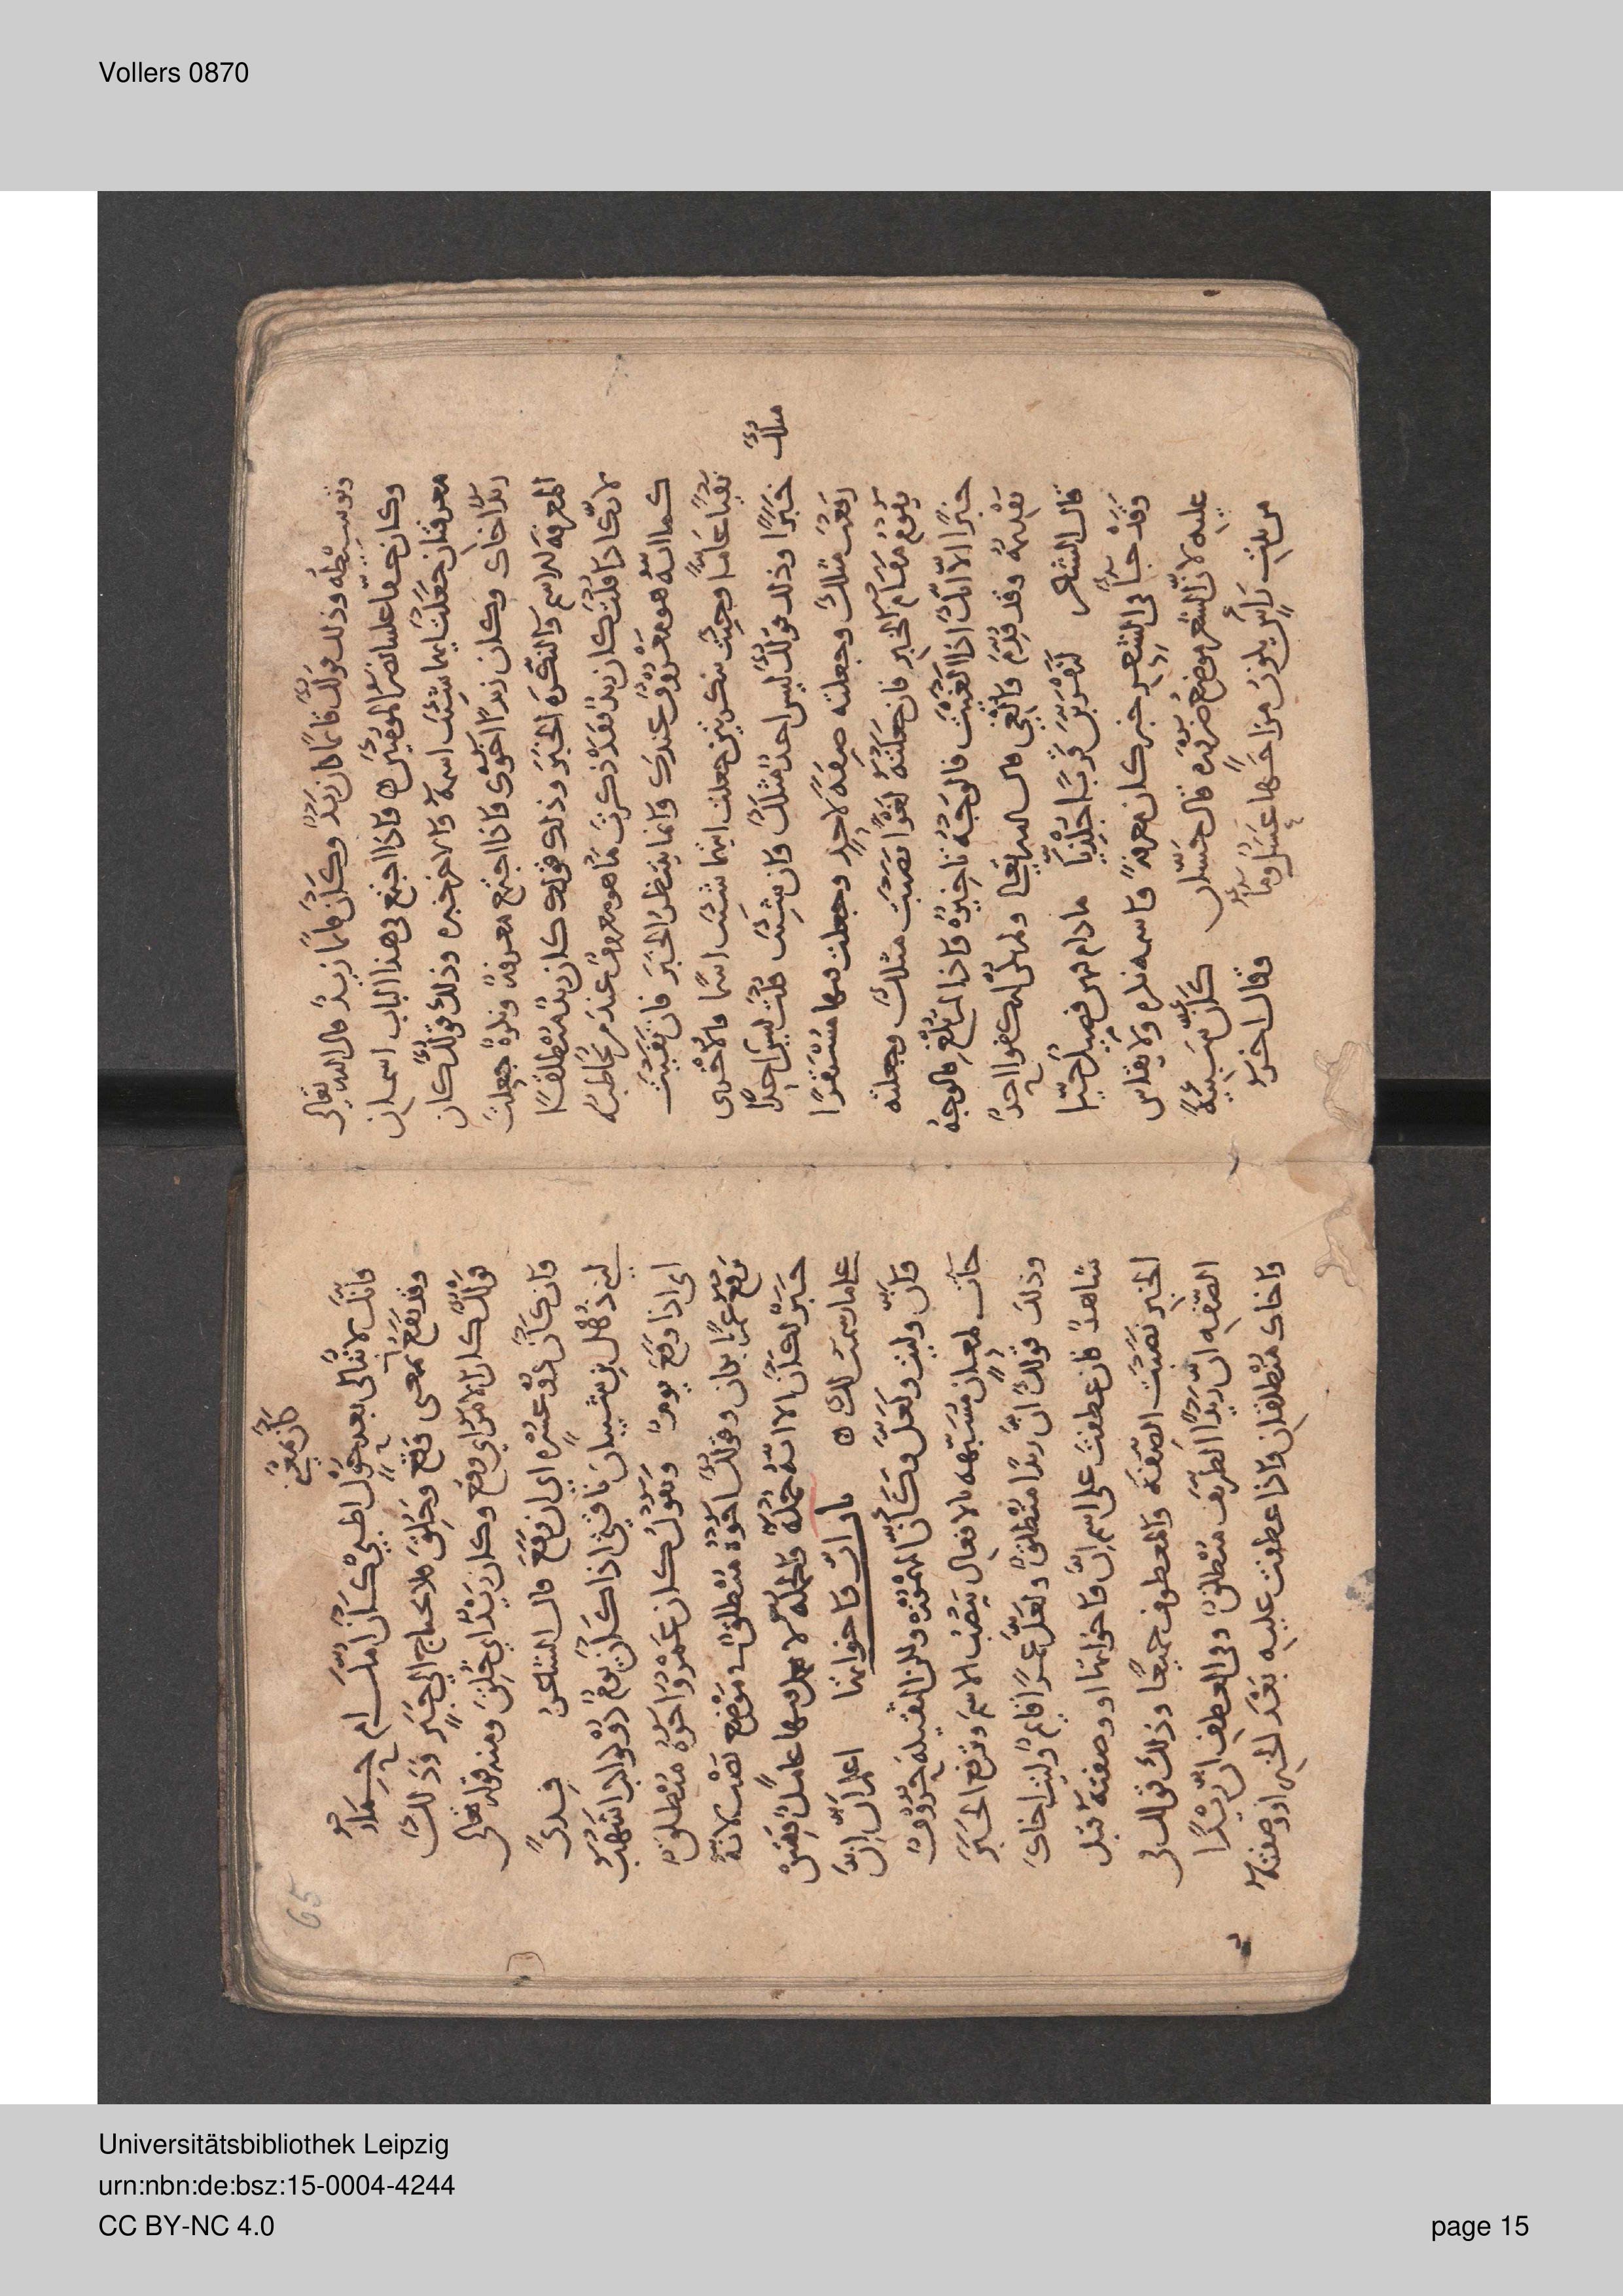 Vollers 0870
وتوسطه وذلك قولك قائمًا كان زيدٌ وكان قائمًا زيدٌ قال الله تعالى
وكان حقًا علينا نصر المؤمنين ه فاذا اجتمع في هذا الباب اسمان
معرفتان جعلت ايهما شئت اسمه والاخر خبره وذلك قولك كان
زيدٌ اخاك وكان زيدًا اخوك فاذا اجتمع معرفة ونكرة جعلت
المعرفة الاسم والنكرة الخبر وذلك قولك كان زيدٌ منطلقًا
لانك اذا قلت كان زيدٌ فقد ذكرت ما هو معروف عند من تخاطبه
كما انه هو معروف عندك وانما ينتظر الخبر فان نفيت
نفيًا عامًا وجئت بنكرتين جعلت ايهما شئت اسمًا والاخرى
خبرًا وذلك قولك ليس احدٌ مثلك وان شئت قلت ليس احدًا مثلك
رفعت مثلك وجعلته صفة لاحد وجعلت فيها مستقرًا
يقوم مقام الخبر فان جعلته لغوًا نصبت مثلك وجعلته
خبرًا الا انك اذا الغيت فالوجه تاخيره واذا لم تلغ فالوجه
تقديمه وقد قدم والغي قال الله تعالى ولم يكن له كفوا احدٌ
قال الشاعر لتقربن قربًا جلذيا ما دام فيهن فصيلٌ حيا
وقد جاء في الشعر خبر كان معرفة واسمه نكرة ولا يقاس
عليه لان الشعر موضع ضرورة قال حسان كان سبيئة
من بيت رأس يكون مزاجها عسل وماء وقال اخر
65
كان بمعنى
وانك لا تبالي بعد حول اظبي كان امك ام حمار
وقد تقع بمعنى وقع وخلق فلا يحتاج الى خبر وذلك
قولك كان الامر اي وقع وكان زيد اي خلق ومنه قوله تعالى
وان كان ذو عسرة اي ان وقع قال الشاعر فدى
لبني ذهل بن شيبان ناقتي اذا كان يوم ذو كواكب اشهب
اي اذا وقع يوم وتقول كان عمرو اخوه منطلق
ترفع عمرًا بكان وقولك اخوه منطلق في موضع نصب لانه
خبر كان الا انه جملة والجملة لا يعمل فيها عامل فقس
على ما رسمت لك ه
باب ان واخواتها اعلم ان ان
وان وليت ولعل وكان المشددة ولكن الثقيلة حروف
جاءت لمعان مشبهة بالافعال ينصب الاسم وترفع الخبر
وذلك قولك ان زيدًا منطلق ولعل عمرًا قائم وليت اخاك
شاهد فان عطفت على اسم ان واخواتها او وصفته قبل
الخبر نصبت الصفة والمعطوف جميعًا وذلك قولك في
الصفة ان زيدًا الظريف منطلق وفي العطف ان زيدًا
واخاك منطلقان واذا عطفت عليه بعد الخبر او وصفته
Universitätsbibliothek Leipzig
urn:nbn:de:bsz:15-0004-4244
CC BY-NC 4.0
page 15